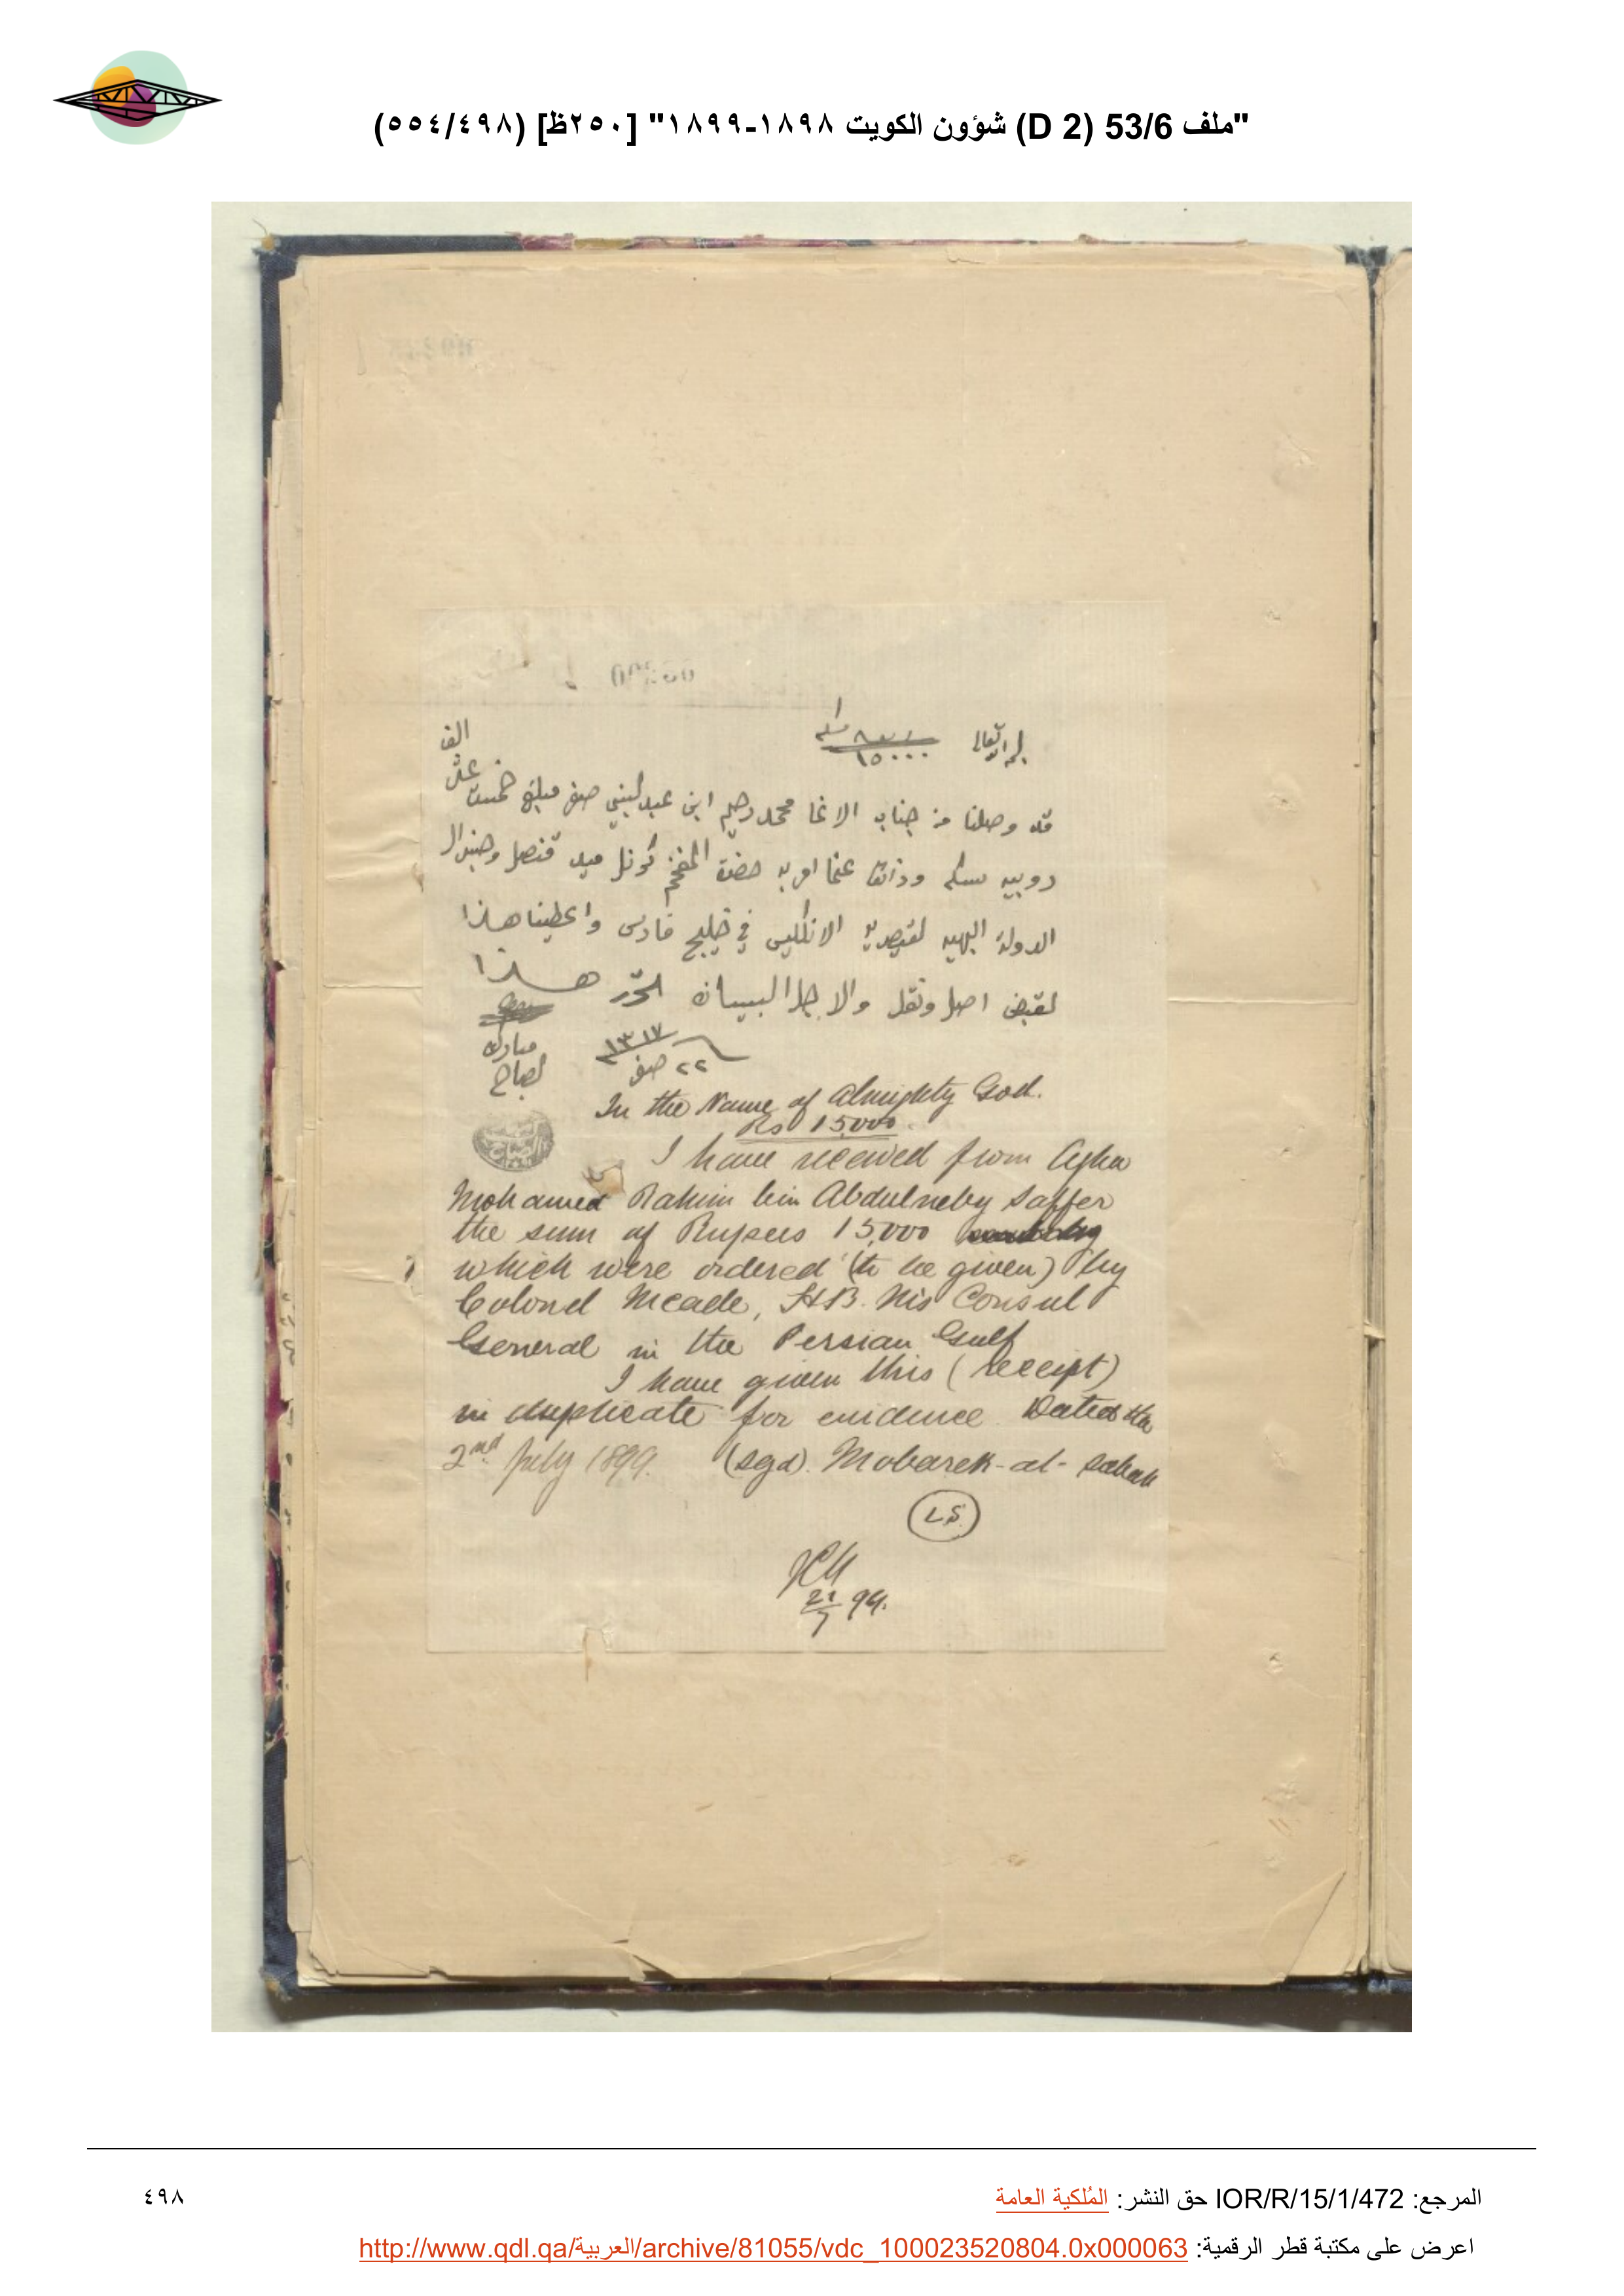 "ملف 53/6 (D 2) شؤون الكويت ١٨٩٨-١٨٩٩" [٢٥٠ظ] (٤٩٨/٥٥٤)
١٥٠٠٠
الف
قد وصلنا من جناب الاغا محمد رحيم ابن عبد لنبي صفر مبلغ خمست عشر
روبيه سكه وذالك عنما امر به حضرة المفخم كرنل ميد قنصل وجنرال
الدولة البهيه لقيصريه الانكليس في خليج فارس واعطينا هذا
لقبض اصل ونقل والاجل البيان تحرر هذا
١٣١٧
٢٢ صفر
مبارك
لصباح
In the Name of Almighty God.
Rs 15,000.
I have received from Agha
Mohamed Rahim bin Abdulneby Saffer
the sum of Rupees 15,000
which were ordered (to be given) by
Colonel Meade, H.B. M's Consul
General in the Persian Gulf
I have given this (receipt)
in duplicate for evidence. Dated the
2nd July 1899. (sgd). Mobarek-al-Sabah
L.S.
21/7 99.
المرجع: IOR/R/15/1/472 حق النشر: المُلكية العامة
٤٩٨
اعرض على مكتبة قطر الرقمية: http://www.qdl.qa/العربية/archive/81055/vdc_100023520804.0x000063